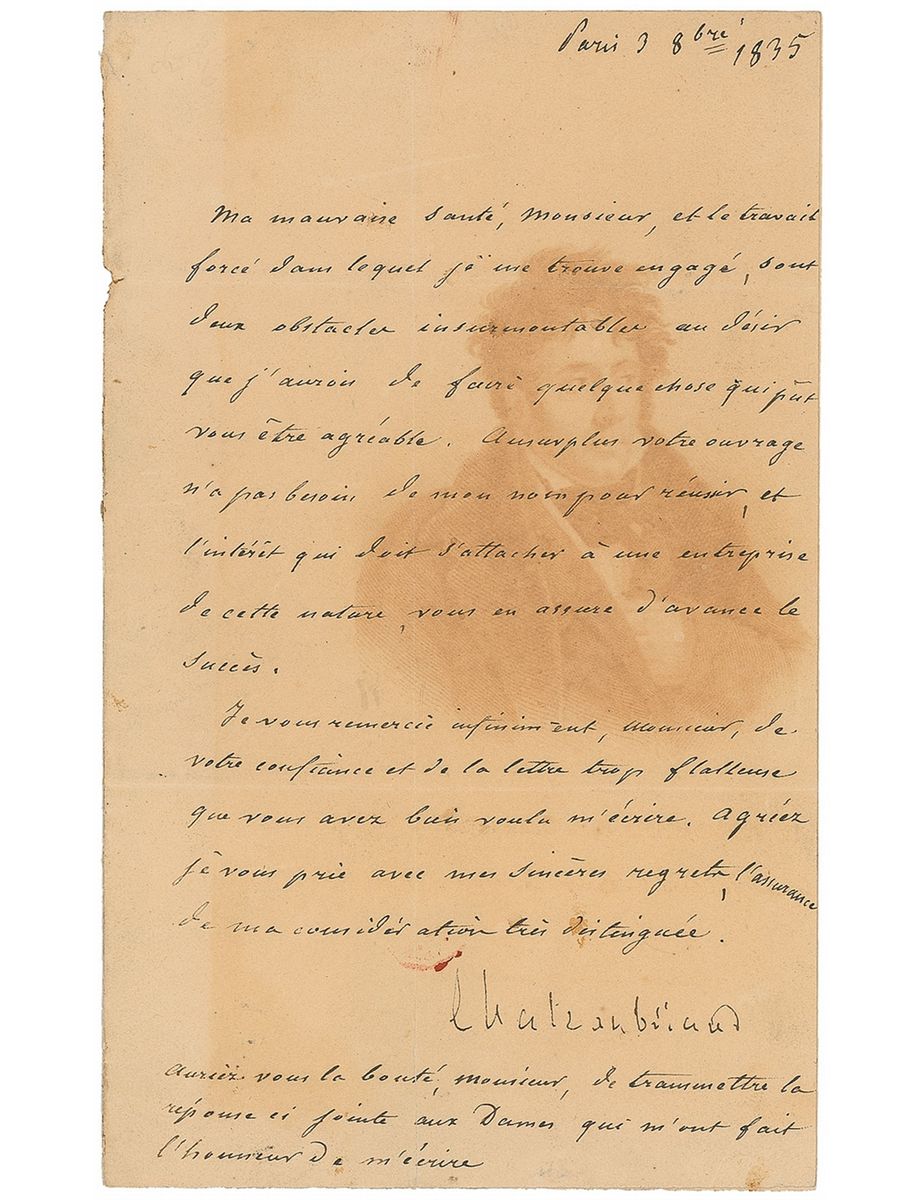 Paris 3 8bre 1835
Ma mauvaise santé, Monsieur, et le travail
forcé dans lequel je me trouve engagé, sont
deux obstacles insurmontables au désir
que j'aurois de faire quelque chose qui pût
vous être agréable. Au surplus votre ouvrage
n'a pas besoin de mon nom pour réussir, et
l'intérêt qui doit s'attacher à une entreprise
de cette nature, vous en assure d'avance le
succès.
Je vous remercie infiniment, Monsieur, de
votre confiance et de la lettre trop flatteuse
que vous avez bien voulu m'écrire. Agriéz
je vous prie avec mes sincères regrets, l'assurance
de ma considération très distinguée.
Chateaubriand
Auriez vous la bonté, Monsieur, de transmettre la
réponse ci jointe aux Dames qui m'ont fait
l'honneur de m'écrire